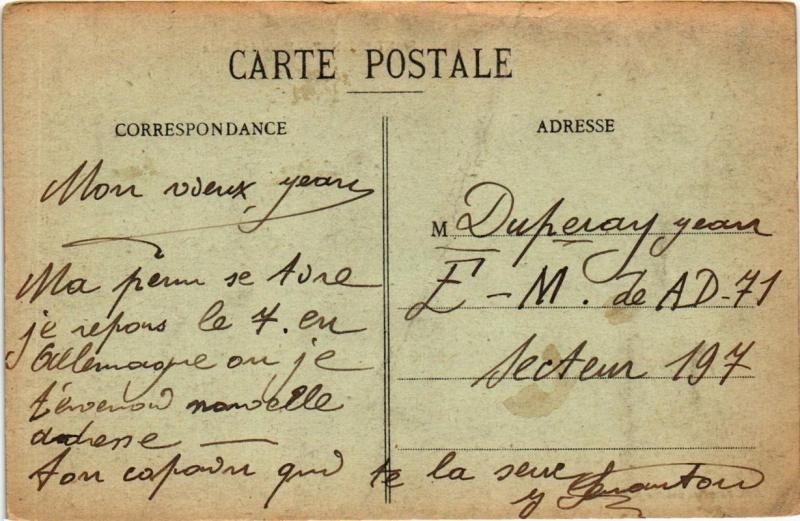 CARTE POSTALE
CORRESPONDANCE
Mon vieux yean
Ma perm se tire
je repars le 7. en
Allemagne ou je
t'enverrai nouvelle
adresse —
ton copain qui te la serre
ADRESSE
M Duperay yean
E-M. de AD-71
Secteur 197